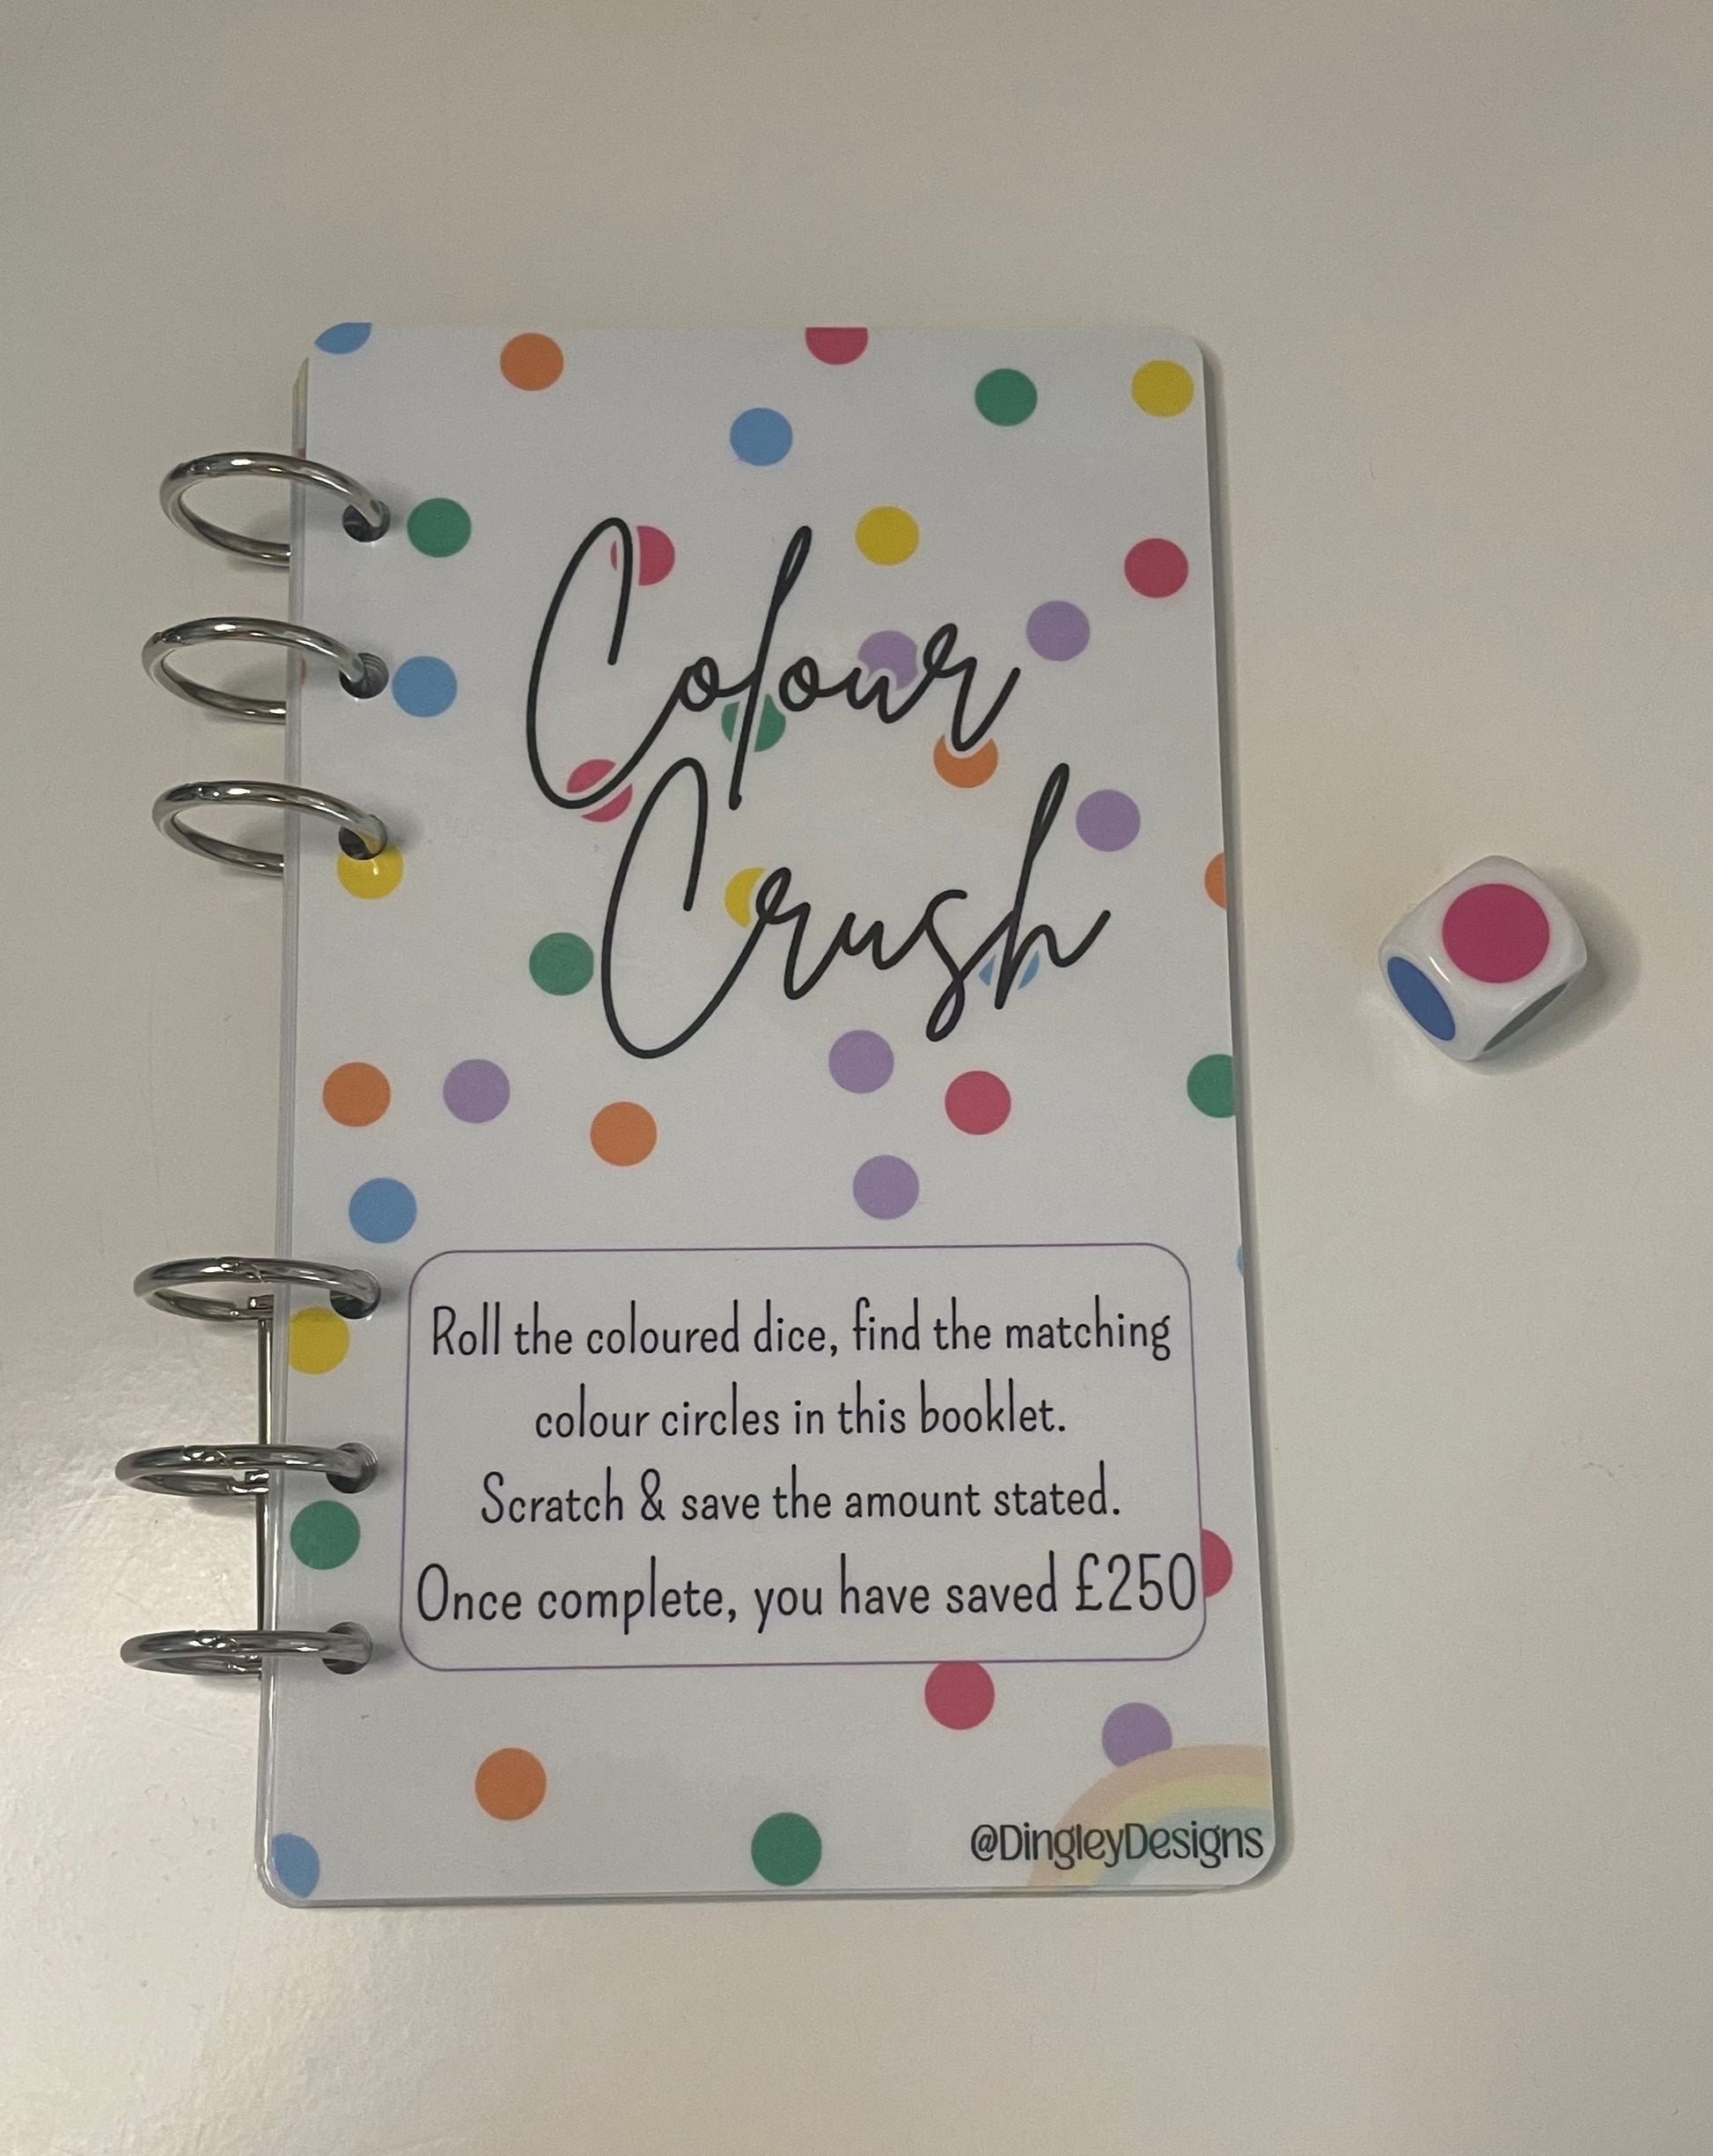 Colour
Crush
Roll the coloured dice, find the matching
colour circles in this booklet.
Scratch & save the amount stated.
Once complete, you have saved £250
@DingleyDesigns